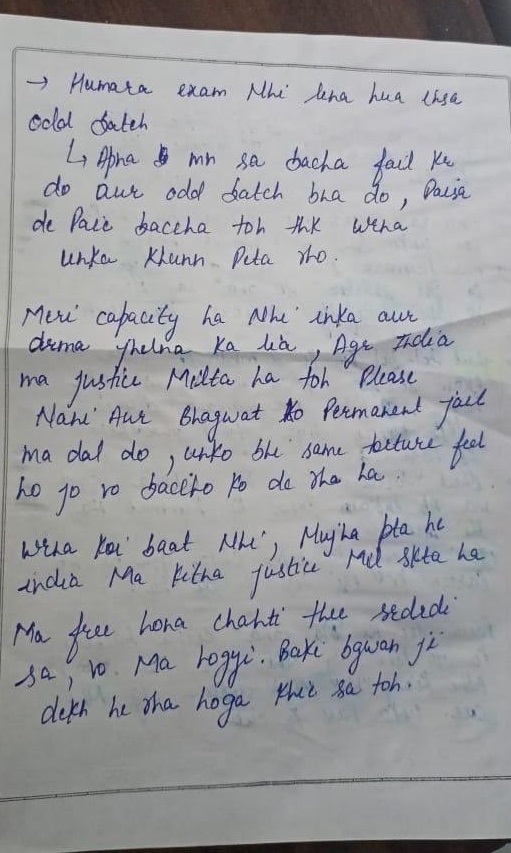 → Humara exam Nhi lena hua issa
odd batch
↳ Apna mn sa bacha fail kr
do aur odd batch bna do, Paisa
de Paie baccha toh thk wrna
unka khunn Peta rho.
Meri capacity ha Nhi inka aur
drma jhelna ka lia, Agr India
ma justice Milta ha toh Please
Nahi Aur Bhagwat ko Permanent jail
ma dal do, unko bhi same torture feel
ho jo vo baccho ko de rha ha.
Wrna koi baat Nhi, Mujha pta he
india Ma kitna justice Mil skta ha
Ma free hona chahti thee
sa, vo Ma hogyi. Baki bgwan ji
dekh he rha hoga khie sa toh.